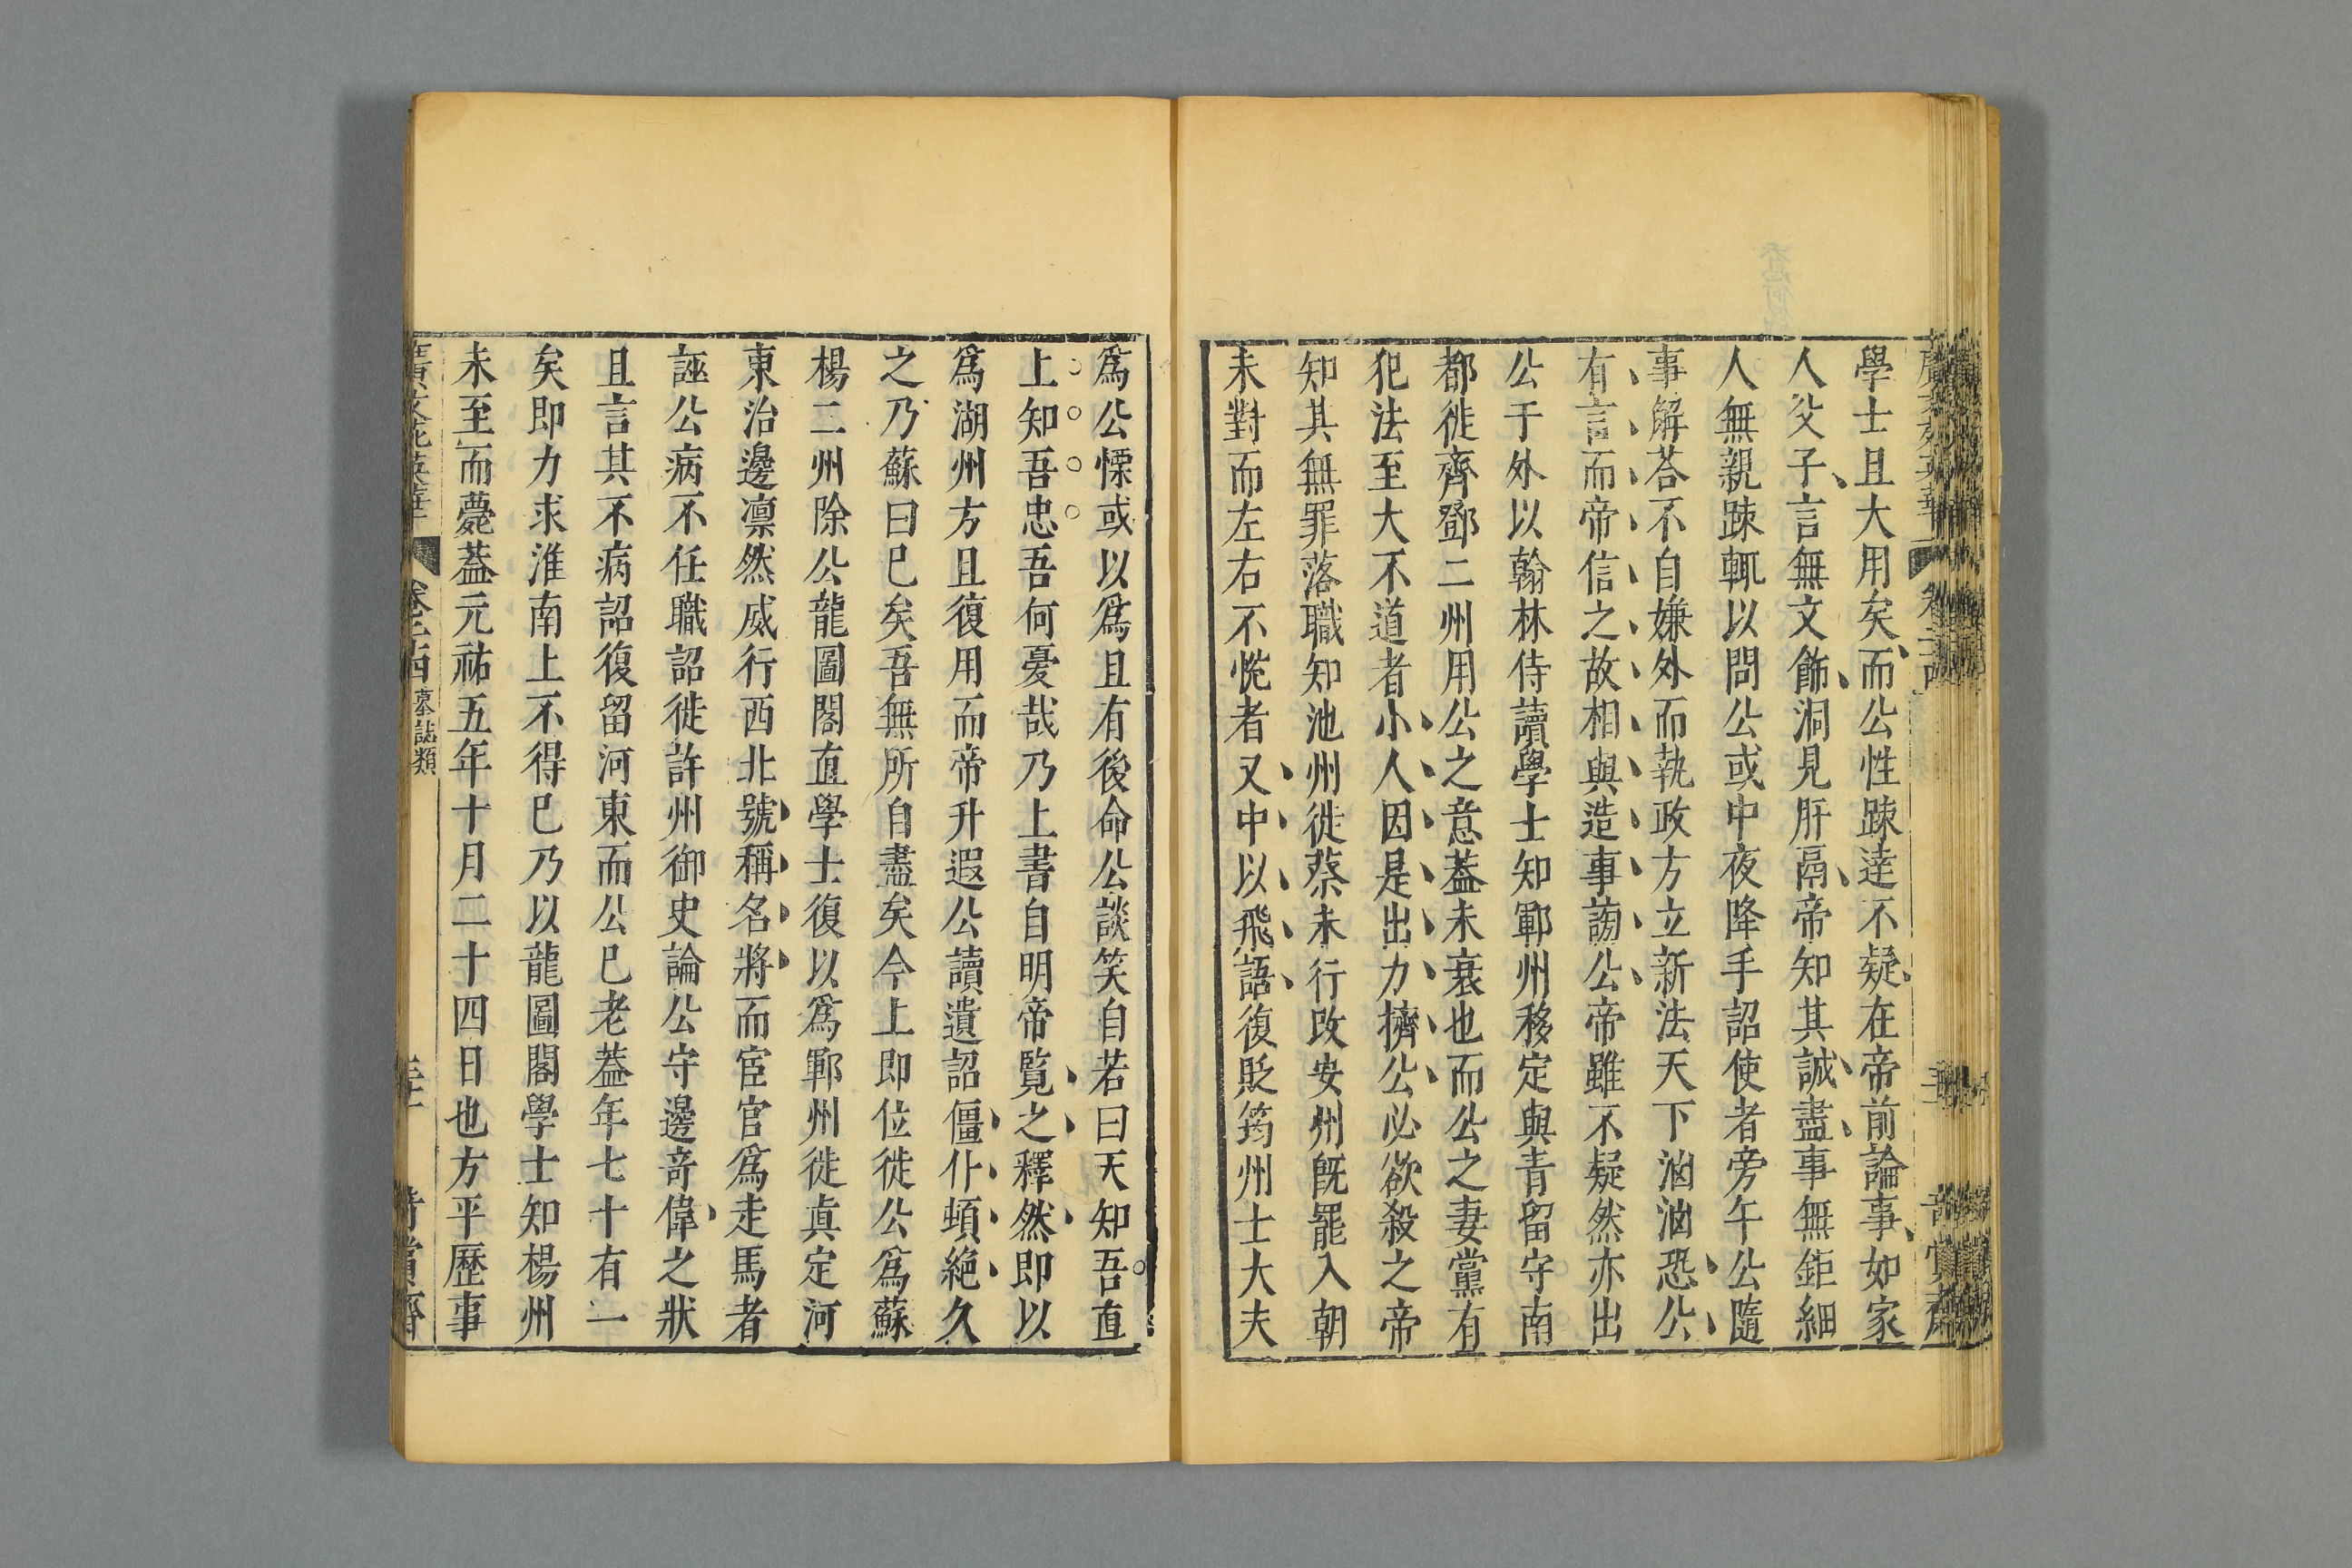 學士且大用矣而公性踈逹不疑在帝前論事如家
人父子言無文飾洞見肝鬲帝知其誠盡事無鉅細
人無親踈輒以問公或中夜降手詔使者旁午公隨
事解荅不自嫌外而執政方立新法天下洶洶恐公
有言而帝信之故相與造事謗公帝雖不疑然亦出
公于外以翰林侍讀學士知鄆州移定與青留守南
都徙齊鄧二州用公之意葢未衰也而公之妻黨有
犯法至大不道者小人因是出力擠公必欲殺之帝
知其無罪落職知池州徙蔡未行改安州旣罷入朝
未對而左右不恱者又中以飛語復貶筠州士大夫
爲公慄或以爲且有後命公談笑自若曰天知吾直
上知吾忠吾何憂哉乃上書自明帝覧之釋然即以
爲湖州方且復用而帝升遐公讀遺詔僵仆頓絶久
之乃蘇曰已矣吾無所自盡矣今上即位徙公爲蘇
楊二州除公龍圖閣直學士復以爲鄆州徙真定河
東治邊凛然威行西北號稱名將而宦官爲走馬者
誣公病不任職詔徙許州御史論公守邊竒偉之狀
且言其不病詔復留河東而公已老葢年七十有一
矣即力求淮南上不得已乃以龍圖閣學士知楊州
未至而薨葢元祐五年十月二十四日也方平歷事
廣文苑英華 卷二十四 墓誌類